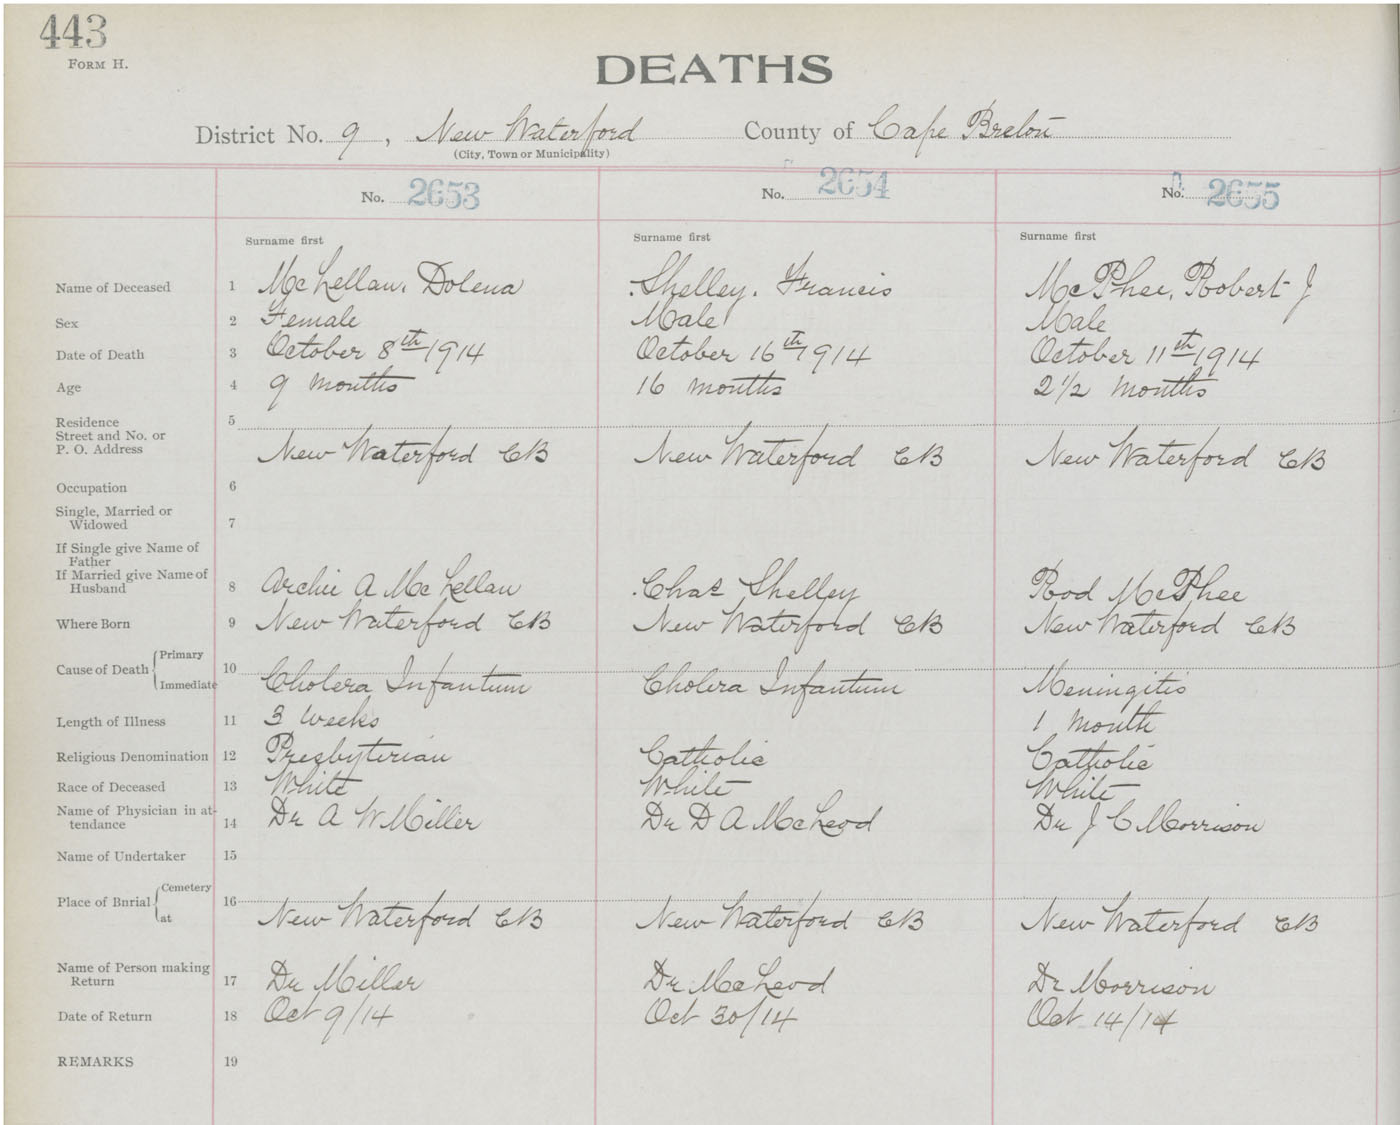 443
FORM H.
DEATHS
District No. 9, New Waterford County of Cape Breton
(City, Town or Municipality)
No. 2653 No. 2654 No. 2655
Surname first Surname first Surname first
Name of Deceased 1 McLellan, Dolena Shelley, Francis McPhee, Robert J
Sex 2 Female Male Male
Date of Death 3 October 8th 1914 October 16th 1914 October 11th 1914
Age 4 9 months 16 months 2 1/2 months
Residence 5
Street and No. or
P. O. Address New Waterford CB New Waterford CB New Waterford CB
Occupation 6
Single, Married or
Widowed 7
If Single give Name of
Father
If Married give Name of
Husband 8 Archie A McLellan Chas Shelley Rod McPhee
Where Born 9 New Waterford CB New Waterford CB New Waterford CB
Cause of Death Primary 10
Immediate Cholera Infantum Cholera Infantum Meningitis
Length of Illness 11 3 weeks 1 month
Religious Denomination 12 Presbyterian Catholic Catholic
Race of Deceased 13 White White White
Name of Physician in at-
tendance 14 Dr A W Miller Dr D A McLeod Dr J C Morrison
Name of Undertaker 15
Place of Burial Cemetery 16
at New Waterford CB New Waterford CB New Waterford CB
Name of Person making
Return 17 Dr Miller Dr McLeod Dr Morrison
Date of Return 18 Oct 9/14 Oct 30/14 Oct 14/14
REMARKS 19